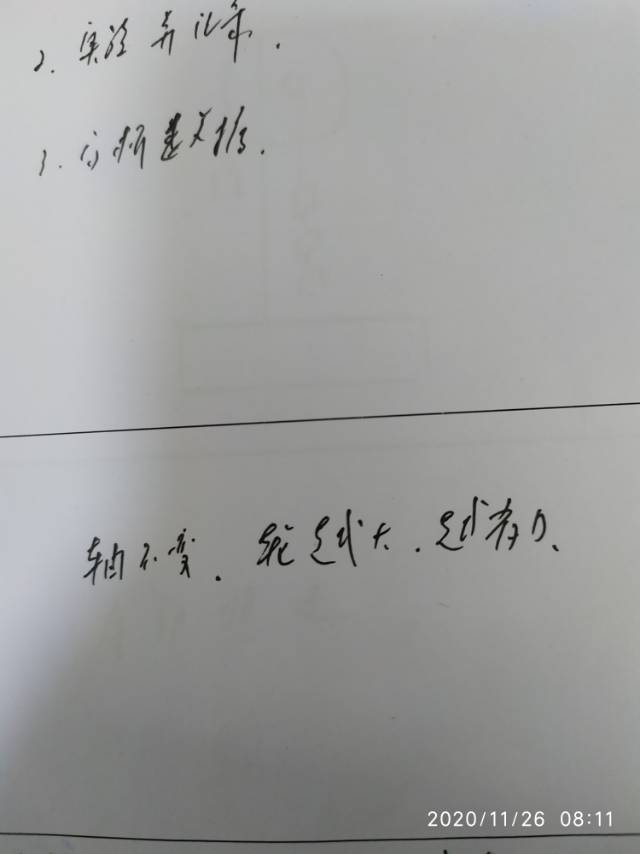 2. 实验并记录.
3. 分析数据.
轴不变. 轮越大. 越省力.
2020/11/26 08:11